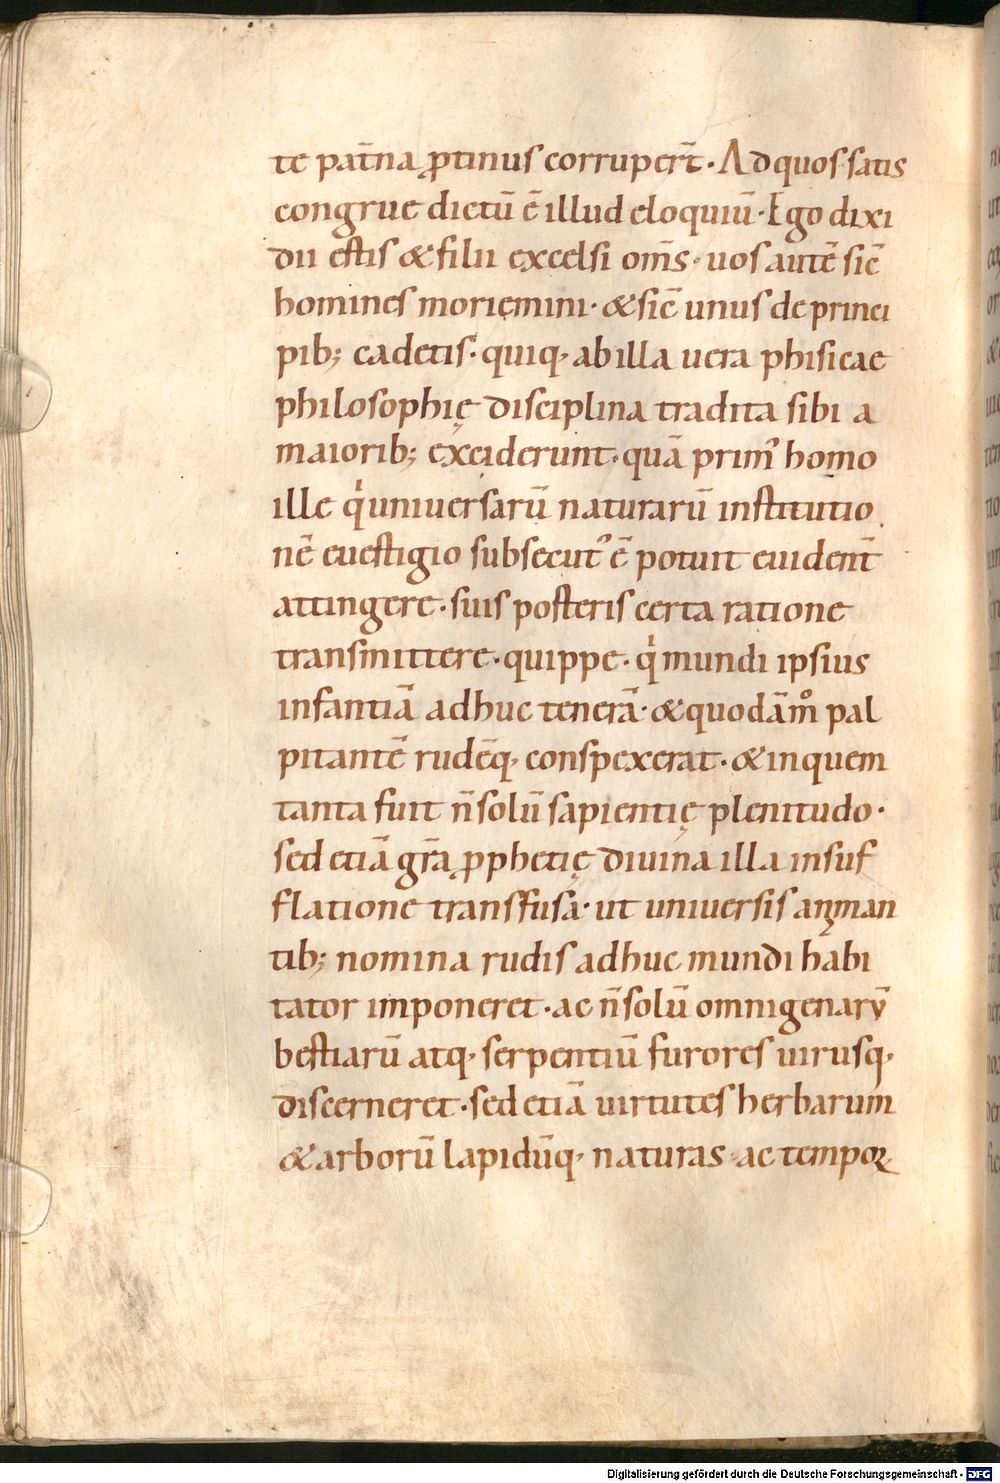 te pat̄na ꝓtinus corruper̄t · Ad quos satis
congrue dictū ē illud eloquiū · Ego dixi
dii estis & filii excelsi om̄s · uos autē sic̄
homines moriemini · & sic̄ unus de princi
pib; cadetis · quiq· ab illa uera phisicae
philosophię disciplina tradita sibi a
maiorib; exciderunt · quā primꝰ homo
ille qͥ uniuersarū naturarū institutio
nē euestigio subsecutꝰ ē potuit euident̄
attingere · suis posteris certa ratione
transmittere · quippe · qͥ mundi ipsius
infantiā adhuc tenerā · & quodām̊ pal
pitantē rudēq· conspexerat · & in quem
tanta fuit n̄ solū sapientię plenitudo ·
sed etiā gr̄a ꝓphetię diuina illa insuf
flatione transfusa · ut uniuersis animan
tib; nomina rudis adhuc mundi habi
tator imponeret · ac n̄ solū omnigenarū
bestiarū atq· serpentiū furores uirusq·
discerneret · sed etiā uirtutes herbarum
& arborū lapidūq· naturas ac tempoꝝ
Digitalisierung gefördert durch die Deutsche Forschungsgemeinschaft - DFG